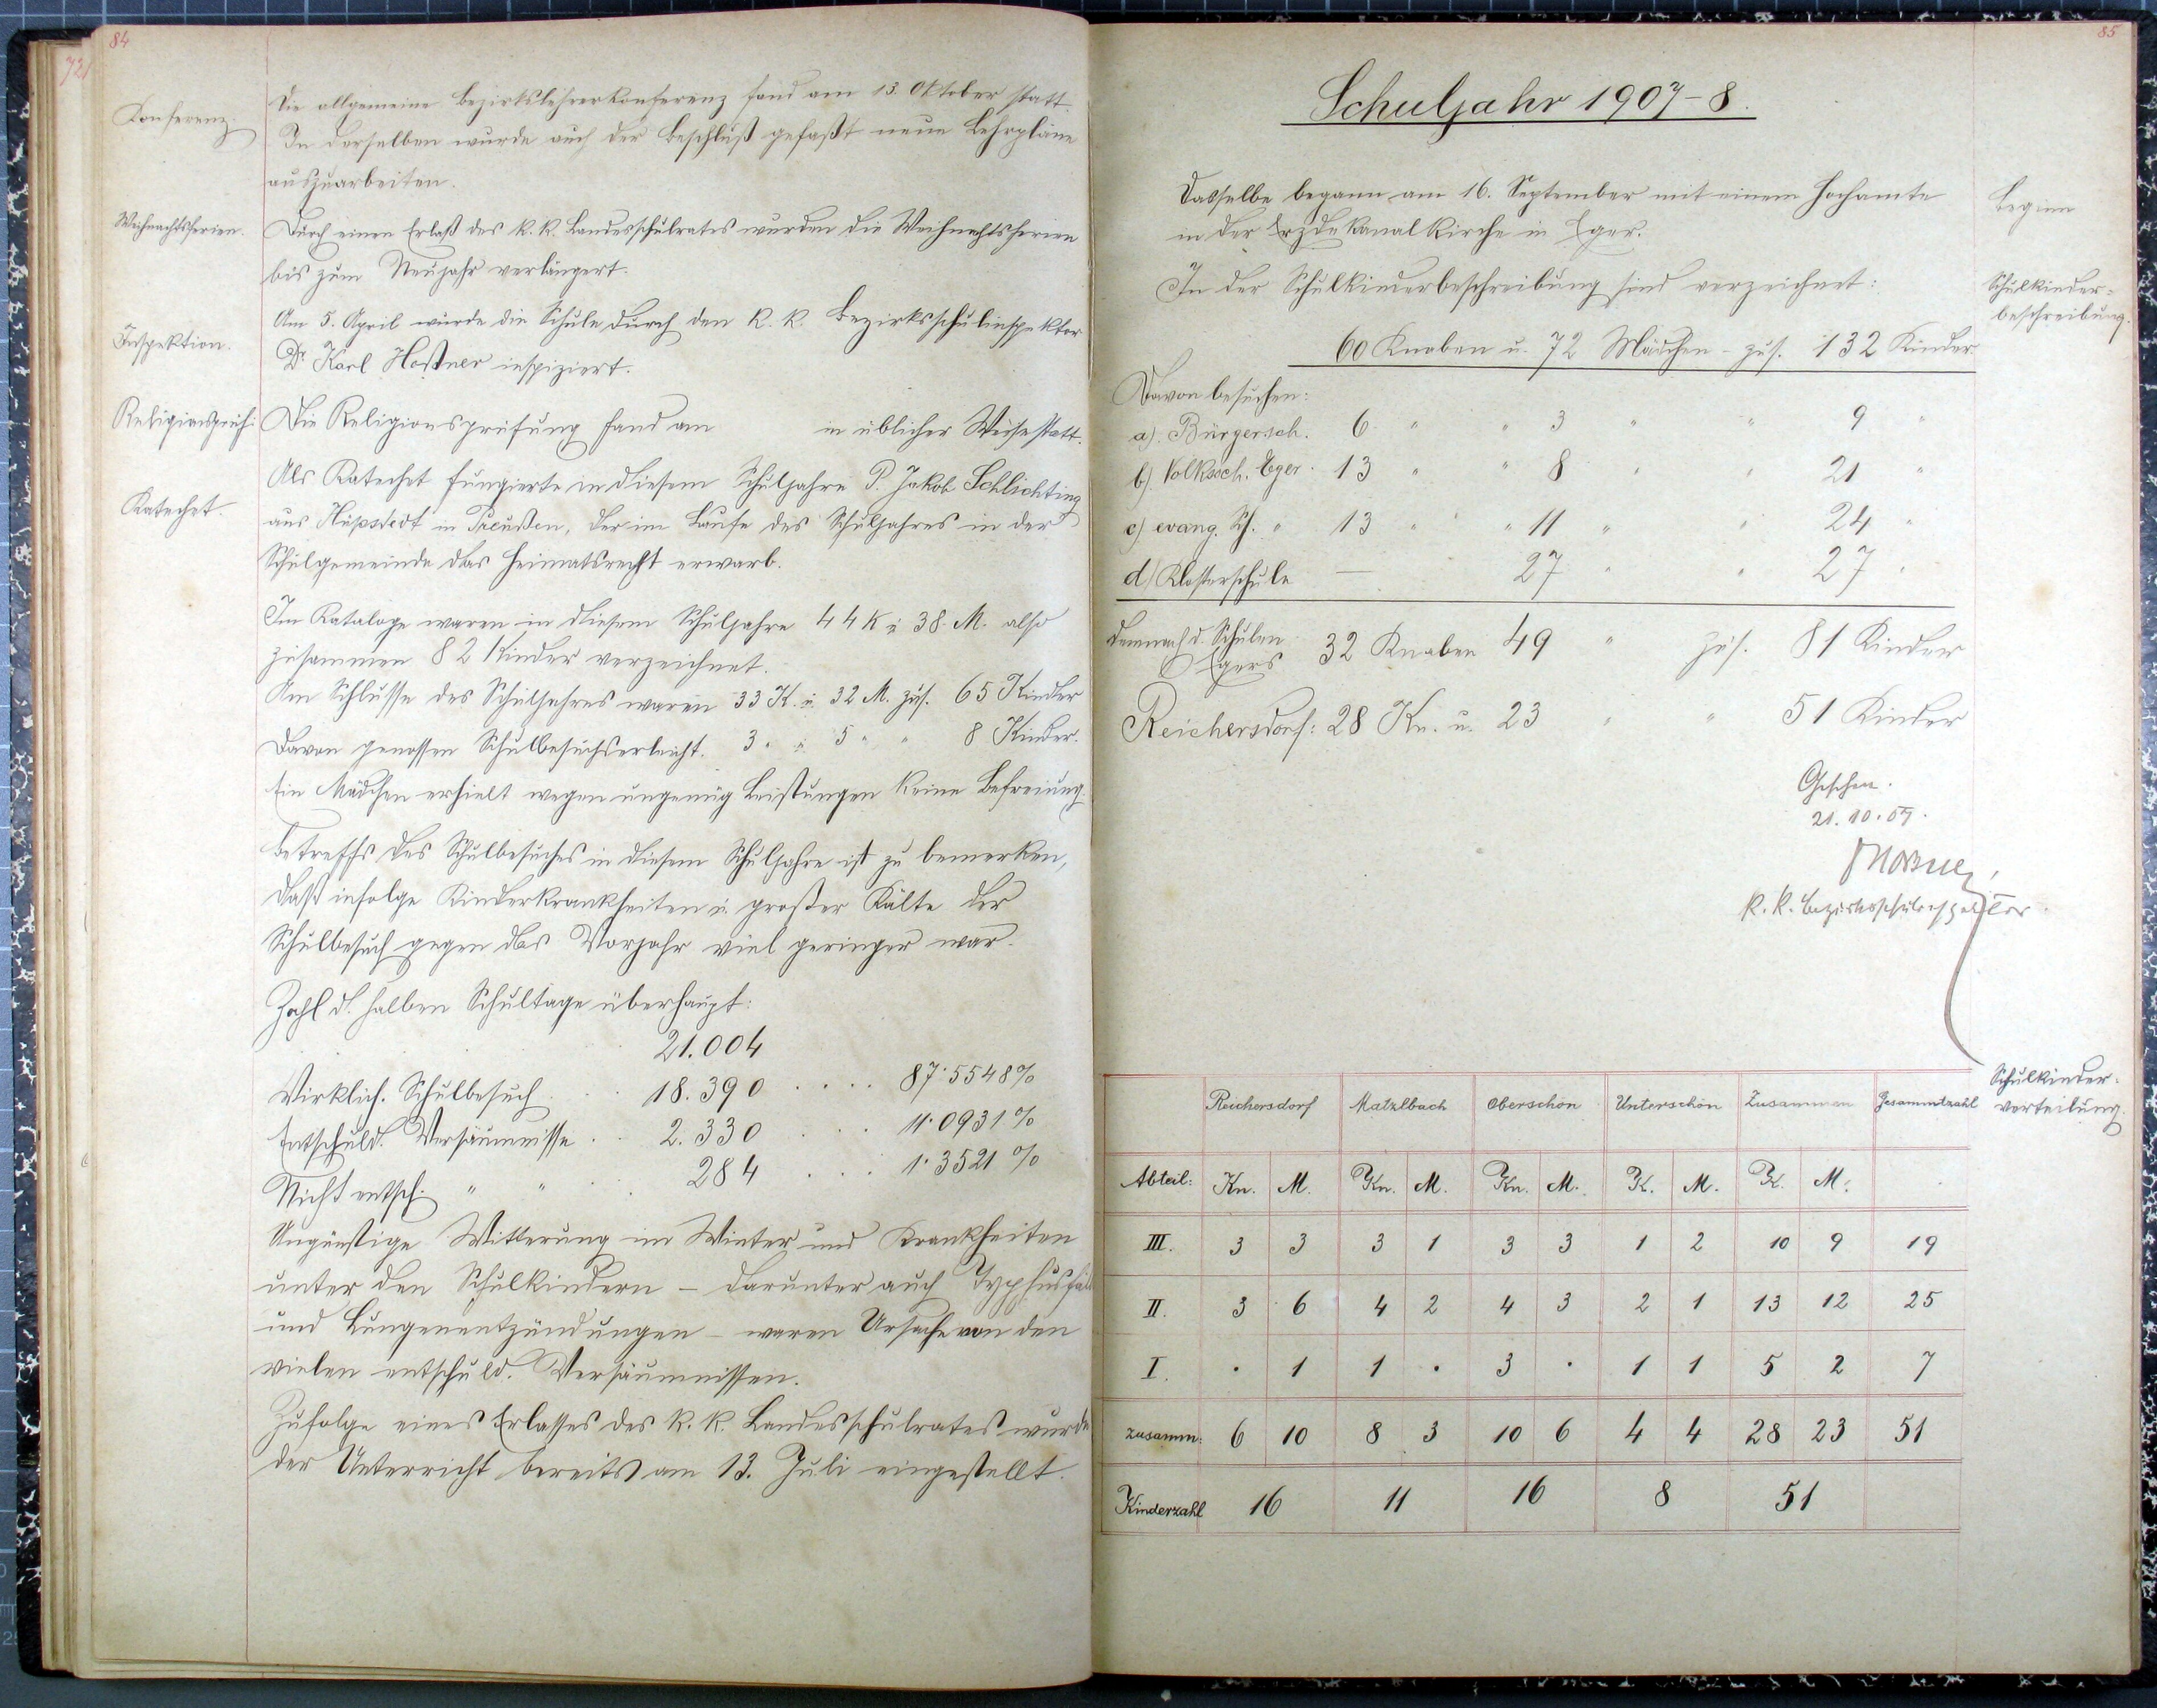 84
72
Konferenz.
Die allgemeine Bezirkslehrerkonferenz fand am 13. Oktober statt.
In derselben wurde auch der Beschluß gefaßt neue Lehrpläne
auszuarbeiten.
Weihnachtsferien.
Durch einen Erlaß des k. k. Landesschulrates wurden die Weihnachtsferien
bis zum Neujahr verlängert.
Inspektion.
Am 5. April wurde die Schule durch den k. k. Bezirksschulinspektor
Dr. Karl Hoßner inspiziert.
Religionsprüf.
Die Religionsprüfung fand am in üblicher Weise statt.
Katechet.
Als Katechet fungierte in diesem Schuljahre P. Jakob Schlichting
aus Hüpstedt in Preußen, der im Laufe des Schuljahres in der
Schulgemeinde das Heimatsrecht erwarb.
Im Kataloge waren in diesem Schuljahre 44 K u. 38. M. also
zusammen 82 Kinder verzeichnet.
Am Schlusse des Schuljahres waren 33 K. u. 32 M. zus. 65 Kinder
Davon genossen Schulbesuchserleicht. 3 " u. 5 " " 8 Kinder.
Ein Mädchen erhielt wegen ungenüg Leistungen keine Befreiung.
Betreffs des Schulbesuches in diesem Schuljahre ist zu bemerken,
daß infolge Kinderkrankheiten u. großer Kälte der
Schulbesuch gegen das Vorjahr viel geringer war.
Zahl d. halben Schultage überhaupt:
21.004
Wirklich. Schulbesuch . . 18.390 . . . . 87·5548%
Entschuld. Versäumnisse . . 2.330 . . . 11·0931%
Nicht entsch. " " . 284 . . . 1·3521%
Ungünstige Witterung im Winter und Krankheiten
unter den Schulkindern – darunter auch Typhusfäll
und Lungenentzündungen – waren Ursache von den
vielen entschuld. Versäumnissen.
Zufolge eines Erlasses des k. k. Landesschulrates wurde
der Unterricht bereits am 13. Juli eingestellt.
85
Schuljahr 1907-8.
Dasselbe begann am 16. September mit einem Hochamte
in der Erzdekanalkirche in Eger.
Beginn
In der Schulkinderbeschreibung sind verzeichnet:
Schulkinder=
beschreibung.
60 Knaben u. 72 Mädchen – zus. 132 Kinder.
Davon besuchen:
a). Bürgersch. 6 " " 3 " " 9 "
b). Volkssch. Eger. 13 " " 8 " " 21 "
c) evang. Sch. " 13 " " 11 " " 24 "
d) Klosterschule — 27 " " 27 "
Demnach d. Schulen
Egers 32 Knaben 49 " zus. 81 Kinder
Reichersdorf: 28 Kn. u. 23 " " 51 Kinder
Gesehen.
21.10.07.
Hoßner,
k. k. Bezirksschulinspektor.
Schulkinder=
verteilung.
Reichersdorf Matzlbach Oberschön Unterschön Zusammen Gesammtzahl
Abteil: Kn. M. Kn. M. Kn. M. K. M. K. M.
III. 3 3 3 1 3 3 1 2 10 9 19
II. 3 6 4 2 4 3 2 1 13 12 25
I. . 1 1 . 3 . 1 1 5 2 7
zusamm: 6 10 8 3 10 6 4 4 28 23 51
Kinderzahl 16 11 16 8 51